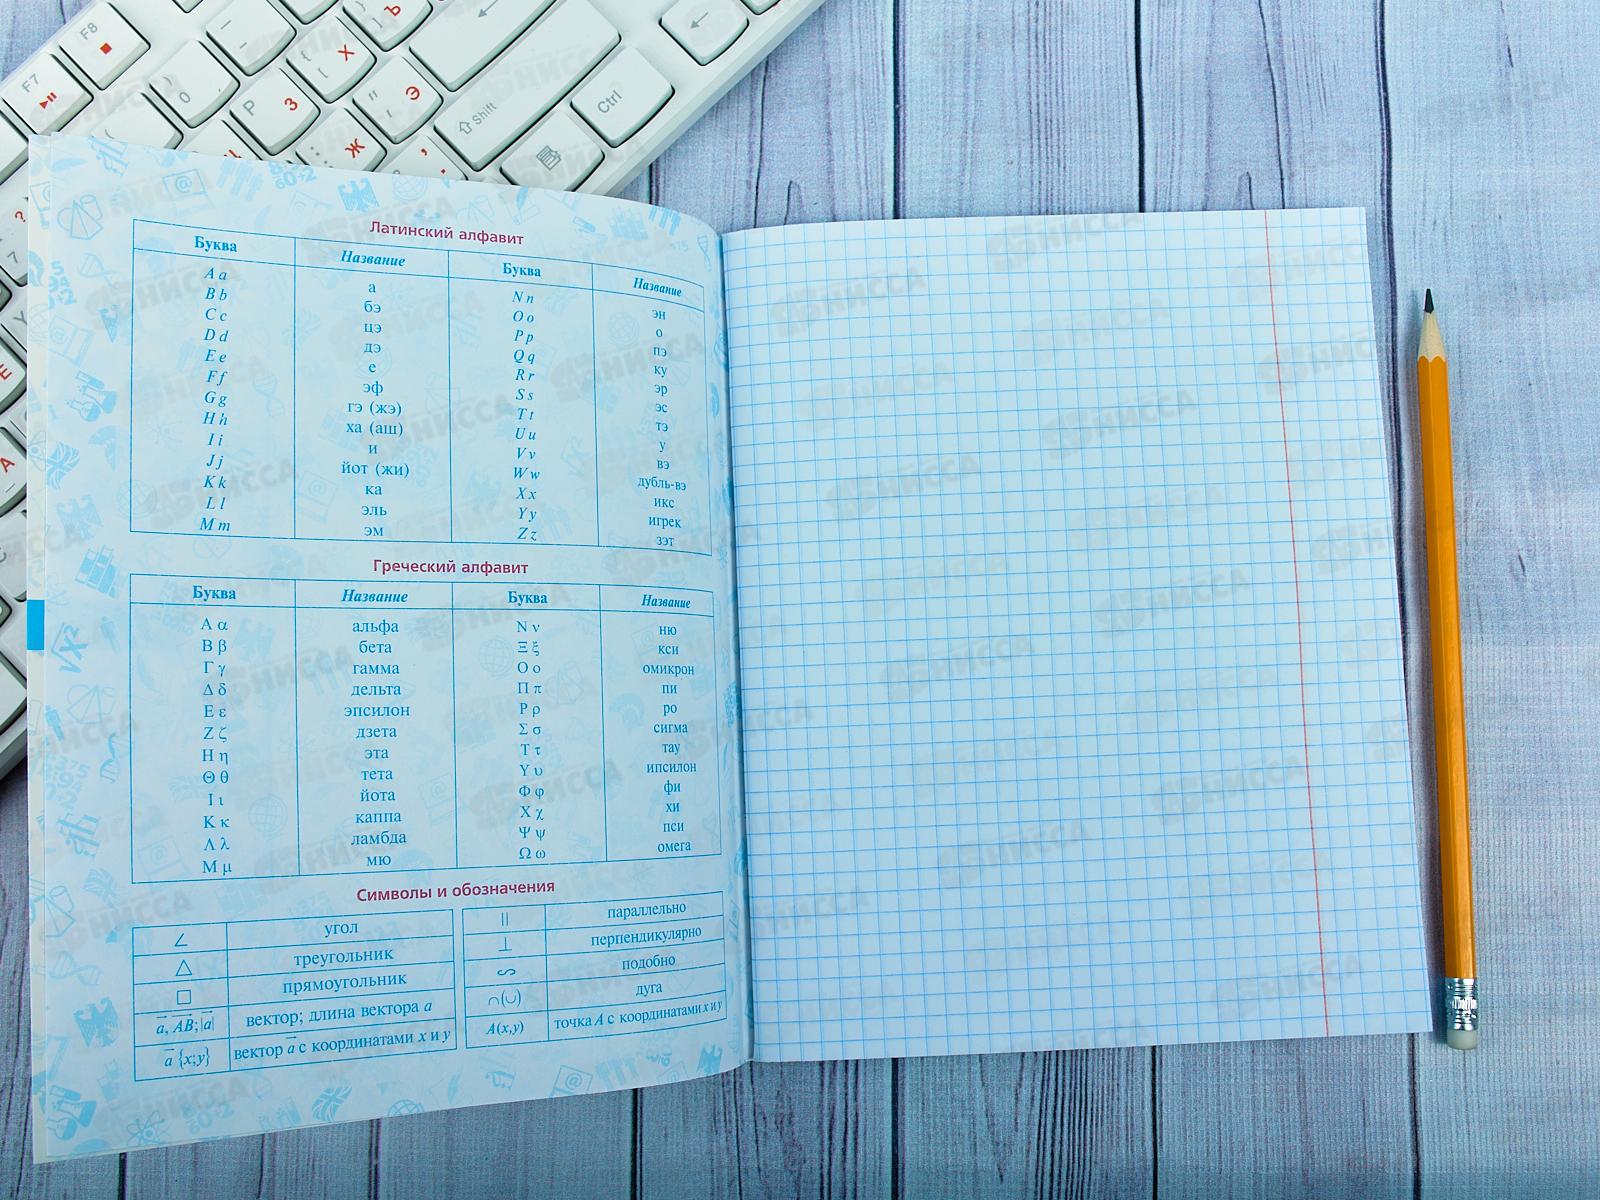 Латинский алфавит
Буква Название Буква Название
A a а N n эн
B b бэ O o о
C c цэ P p пэ
D d дэ Q q ку
E e е R r эр
F f эф S s эс
G g гэ (жэ) T t тэ
H h ха (аш) U u у
I i и V v вэ
J j йот (жи) W w дубль-вэ
K k ка X x икс
L l эль Y y игрек
M m эм Z z зэт
Греческий алфавит
Буква Название Буква Название
Α α альфа Ν ν ню
Β β бета Ξ ξ кси
Γ γ гамма Ο ο омикрон
Δ δ дельта Π π пи
Ε ε эпсилон Ρ ρ ро
Ζ ζ дзета Σ σ сигма
Η η эта Τ τ тау
Θ θ тета Υ υ ипсилон
Ι ι йота Φ φ фи
Κ κ каппа Χ χ хи
Λ λ ламбда Ψ ψ пси
Μ μ мю Ω ω омега
Символы и обозначения
∠ угол || параллельно
△ треугольник ⊥ перпендикулярно
□ прямоугольник ∽ подобно
a, AB; |a| вектор; длина вектора a ∩(∪) дуга
a {x;y} вектор a с координатами x и y A(x,y) точка A с координатами x и y
F7
F8
P З
Х
Ъ
Э
Ж
Shift
Ctrl
НИССА